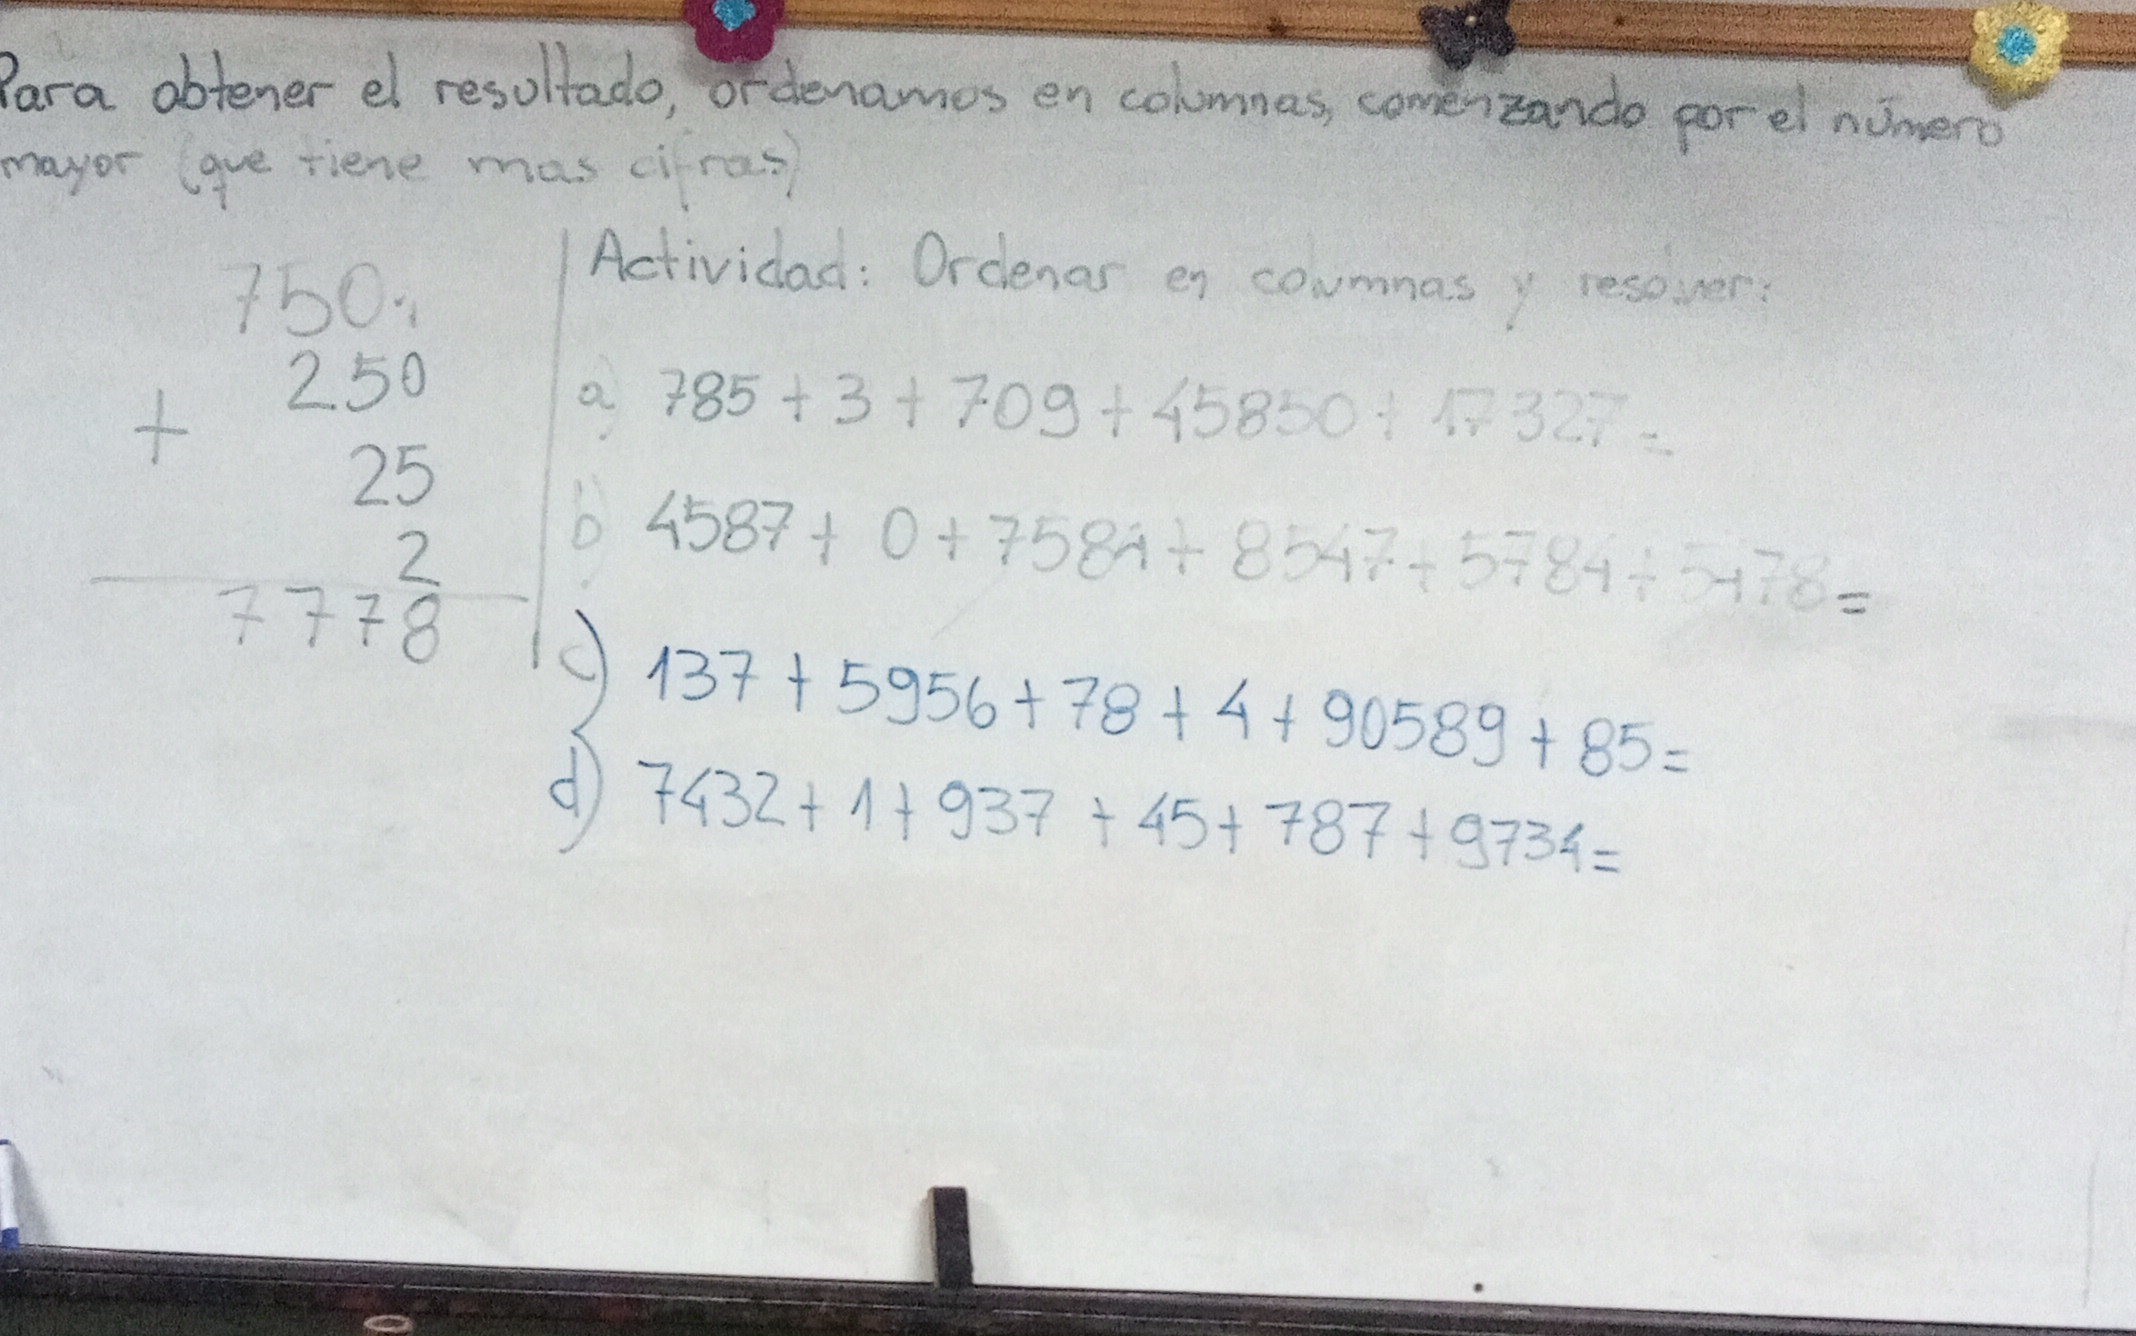 Para obtener el resultado, ordenamos en columnas, comenzando por el número
mayor (que tiene mas cifras)
7501
250
+
25
2
7778
Actividad: Ordenar en columnas y resolver:
a) 785 + 3 + 709 + 45850 + 17327 =
b) 4587 + 0 + 7584 + 8547 + 5784 + 5478 =
c) 137 + 5956 + 78 + 4 + 90589 + 85 =
d) 7432 + 1 + 937 + 45 + 787 + 9734 =